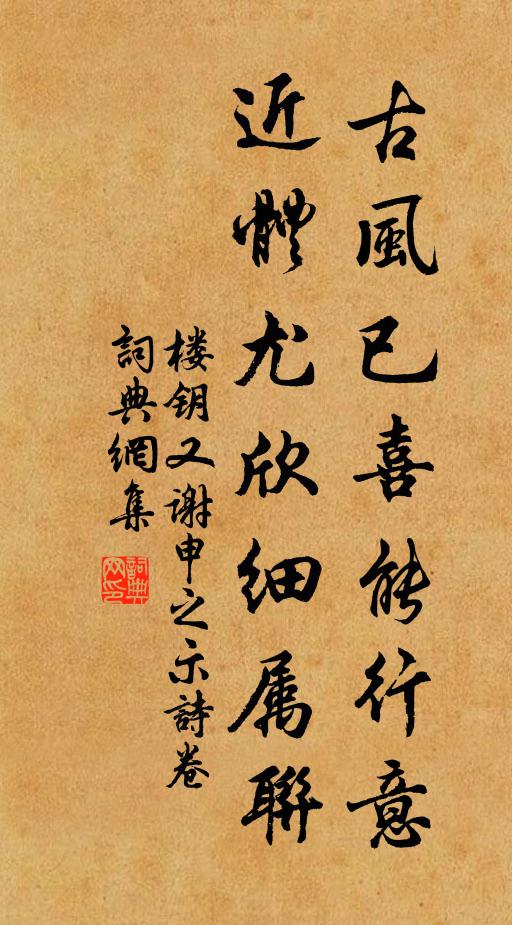 古風已喜能行意
近體尤欣細属聯
楼钥又謝申之示詩卷
詞典網集
詞典网印